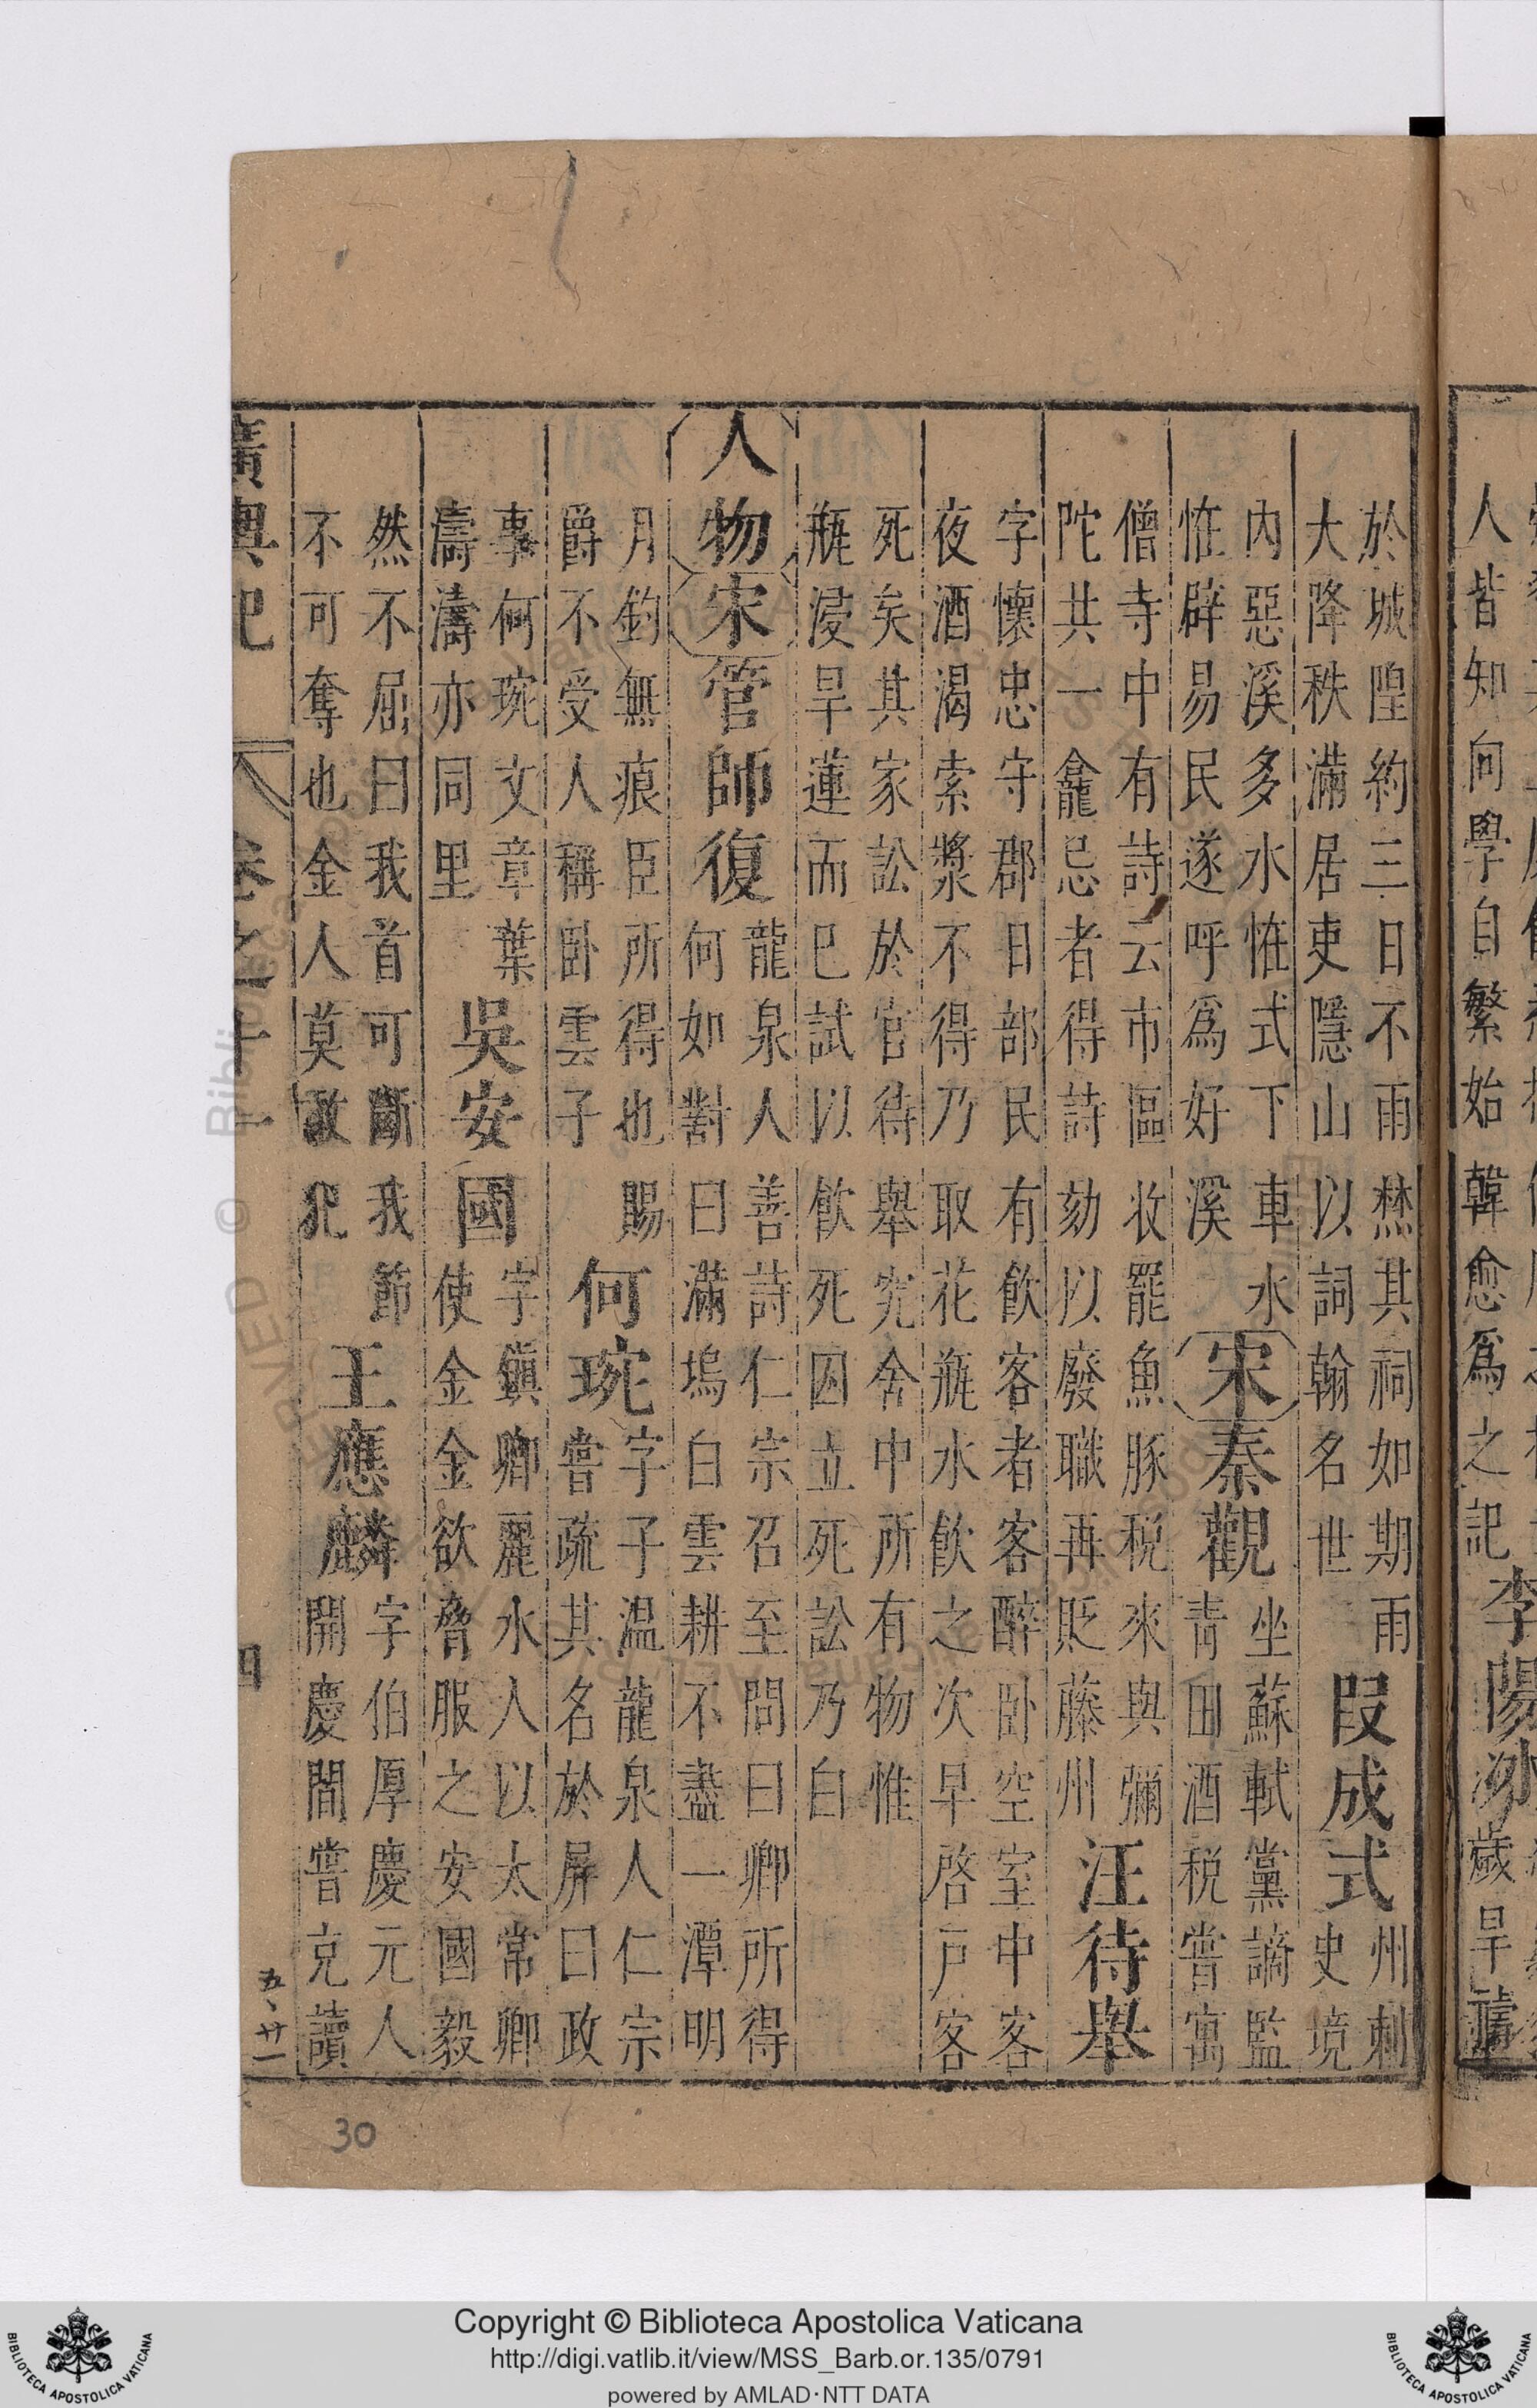 人皆知向學自繁始韓愈爲之記
李陽冰
歲旱禱
於城隍約三日不雨焚其祠如期雨
大降秩滿居吏隱山以詞翰名世
段成式
州刺
史境
內惡溪多水怪式下車水
怪辟易民遂呼爲好溪
宋秦觀
坐蘇軾黨謫監
青田酒税嘗寓
僧寺中有詩云市區收罷魚豚税來與彌
陀共一龕忌者得詩劾以廢職再貶藤州
汪待舉
字懷忠守郡日部民有飲客者客醉卧空室中客
夜酒渴索漿不得乃取花瓶水飲之次早啓戶客
死矣其家訟於官待舉究舍中所有物惟
瓶浸旱蓮而已試以飲死囚立死訟乃白
人物宋管師復
龍泉人善詩仁宗召至問曰卿所得
何如對曰滿塢白雲耕不盡一潭明
月釣無痕臣所得也賜
爵不受人稱卧雲子
何琬
字子温龍泉人仁宗
嘗疏其名於屏曰政
事何琬文章葉
濤濤亦同里
吳安國
字鎮卿麗水人以太常卿
使金金欲脅服之安國毅
然不屈曰我首可斷我節
不可奪也金人莫敢犯
王應麟
字伯厚慶元人
開慶間嘗充讀
廣輿記 卷之十一 四
五、廿一
30
Copyright © Biblioteca Apostolica Vaticana
http://digi.vatlib.it/view/MSS_Barb.or.135/0791
powered by AMLAD·NTT DATA
BIBLIOTECA APOSTOLICA VATICANA
BIBLIOTECA APOSTOLICA VATICANA